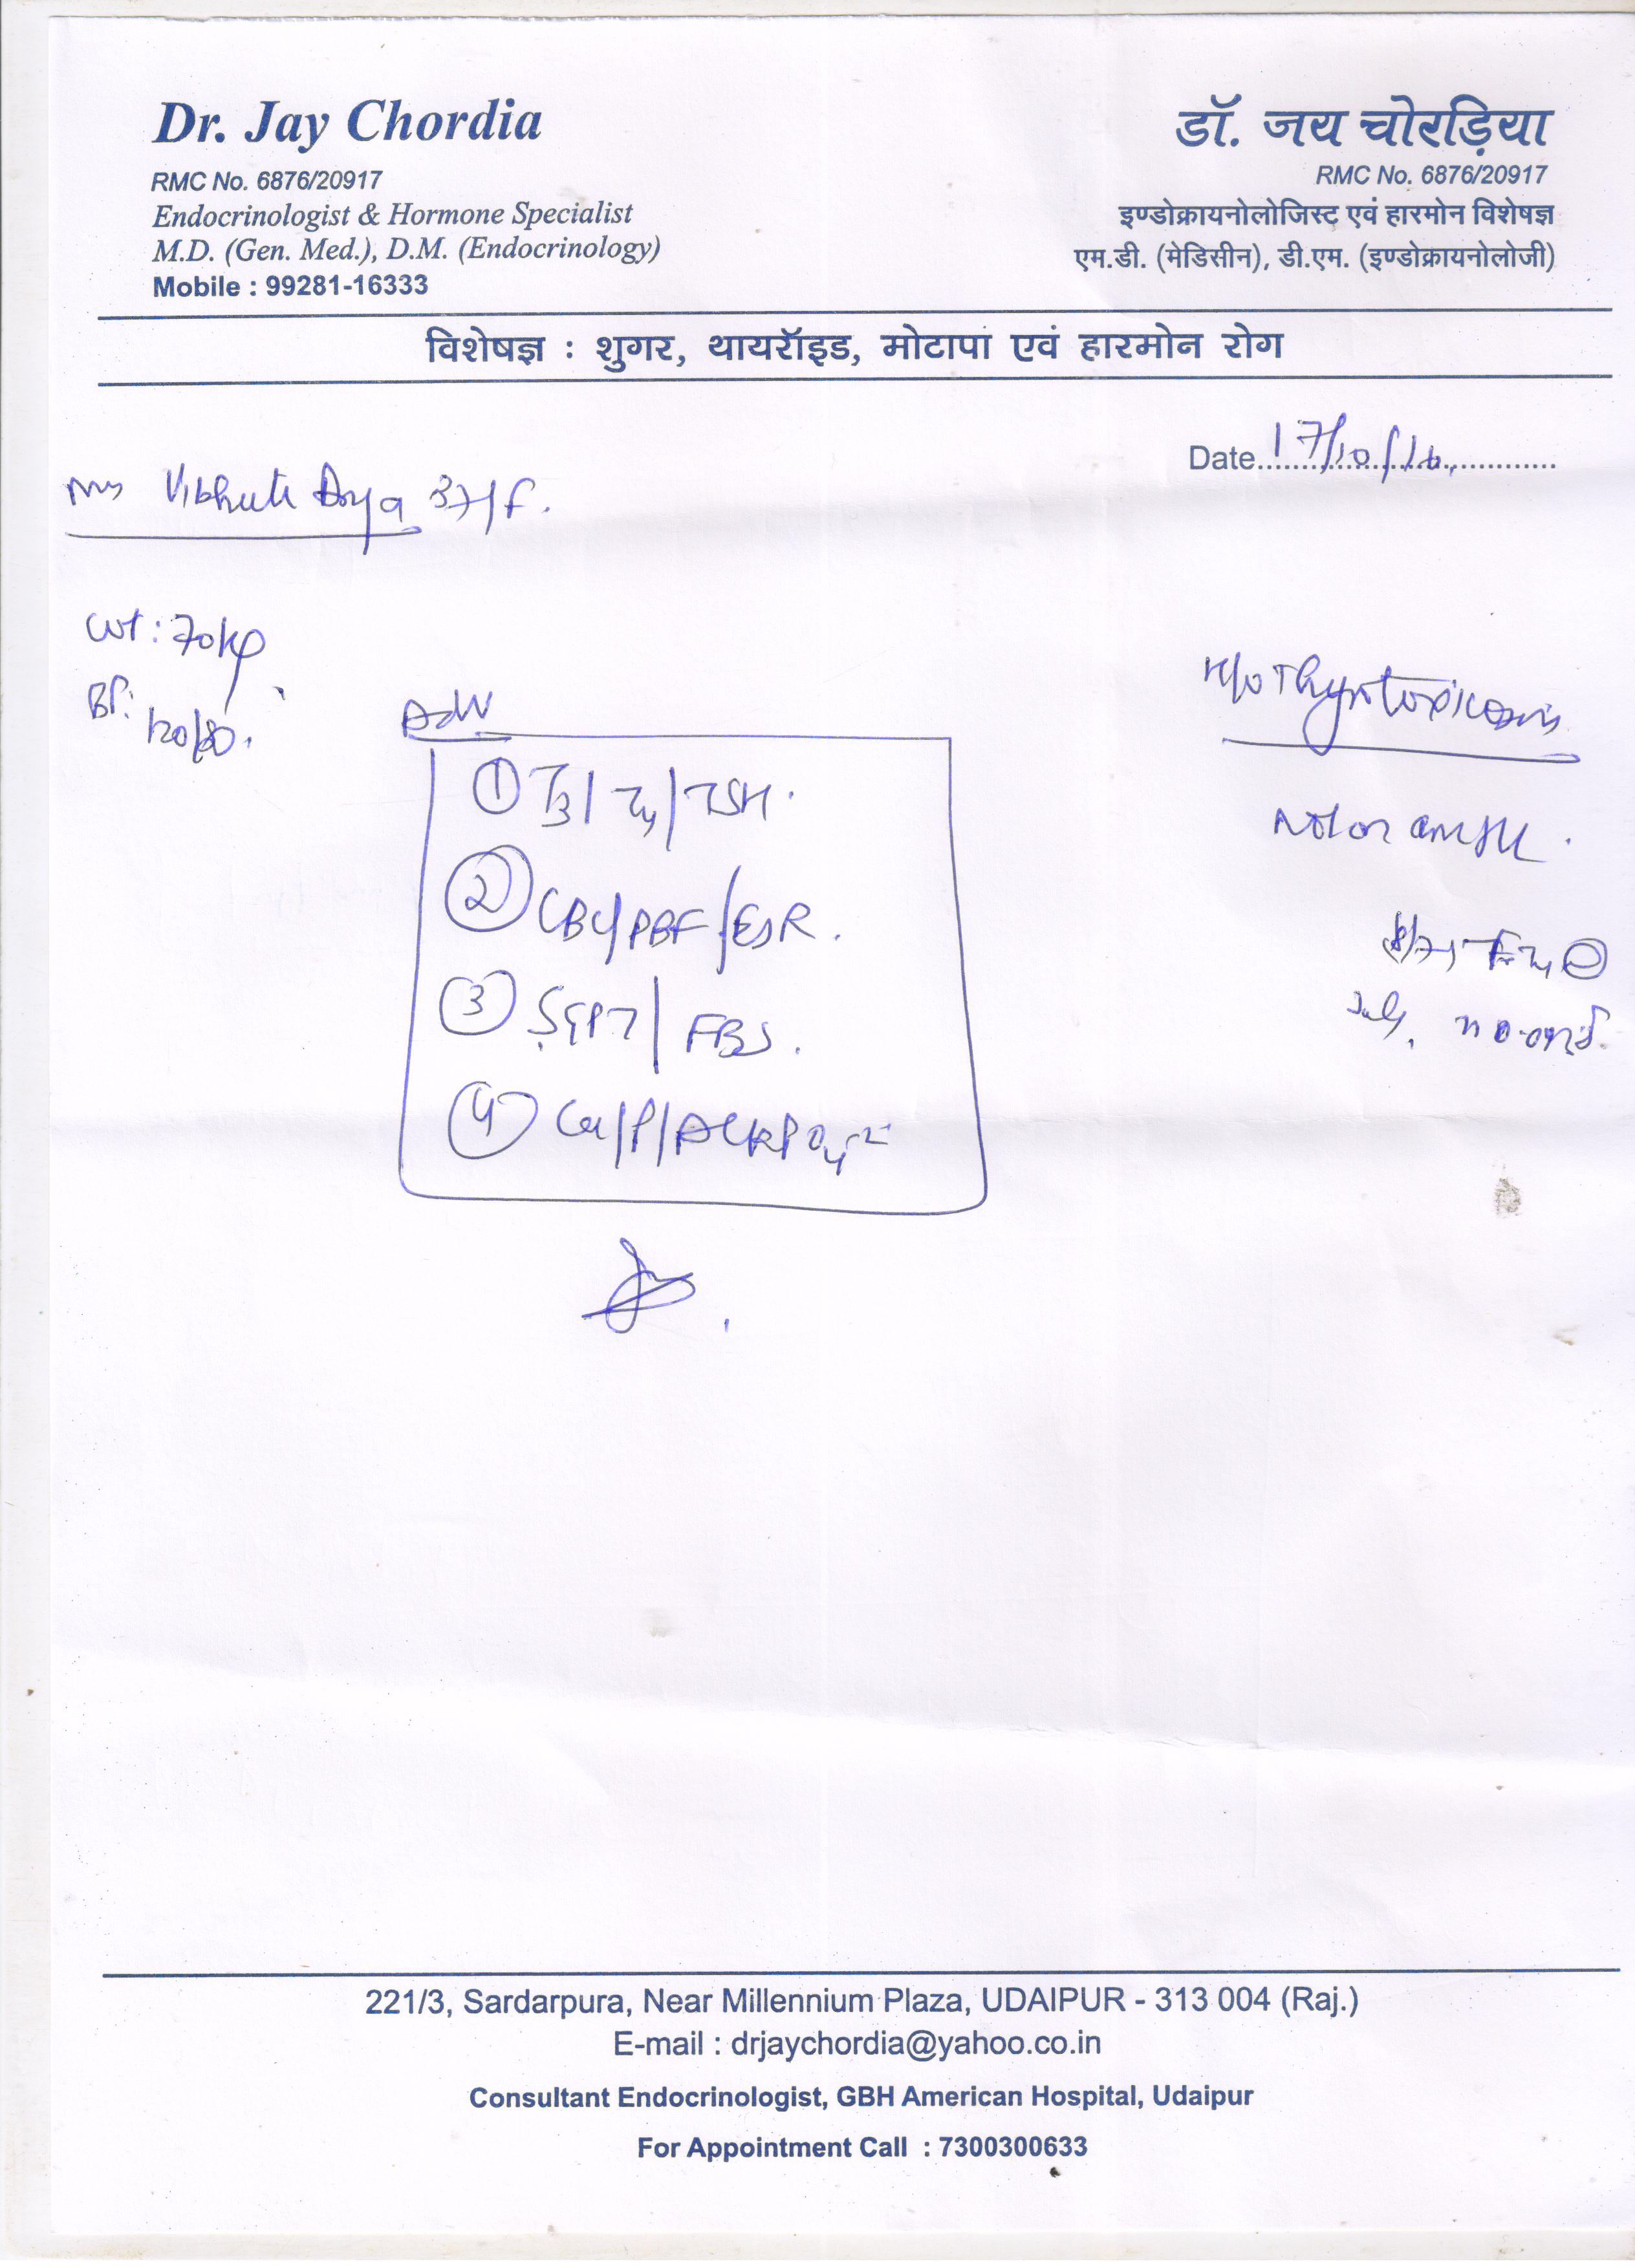 Dr. Jay Chordia
RMC No. 6876/20917
Endocrinologist & Hormone Specialist
M.D. (Gen. Med.), D.M. (Endocrinology)
Mobile : 99281-16333
डॉ. जय चोरड़िया
RMC No. 6876/20917
इण्डोक्रायनोलोजिस्ट एवं हारमोन विशेषज्ञ
एम.डी. (मेडिसीन), डी.एम. (इण्डोक्रायनोलोजी)
विशेषज्ञ : शुगर, थायरॉइड, मोटापा एवं हारमोन रोग
Date 17/10/16
Vibhuti Arya 37/F.
Wt: 70kg
BP: 120/80.
Adv
① T3/T4/TSH.
② CBC/PBF/ESR.
③ SGPT/FBS.
④ Ca/P/ALKPO4
H/o Thyrotoxicosis
Not on
221/3, Sardarpura, Near Millennium Plaza, UDAIPUR - 313 004 (Raj.)
E-mail : drjaychordia@yahoo.co.in
Consultant Endocrinologist, GBH American Hospital, Udaipur
For Appointment Call : 7300300633